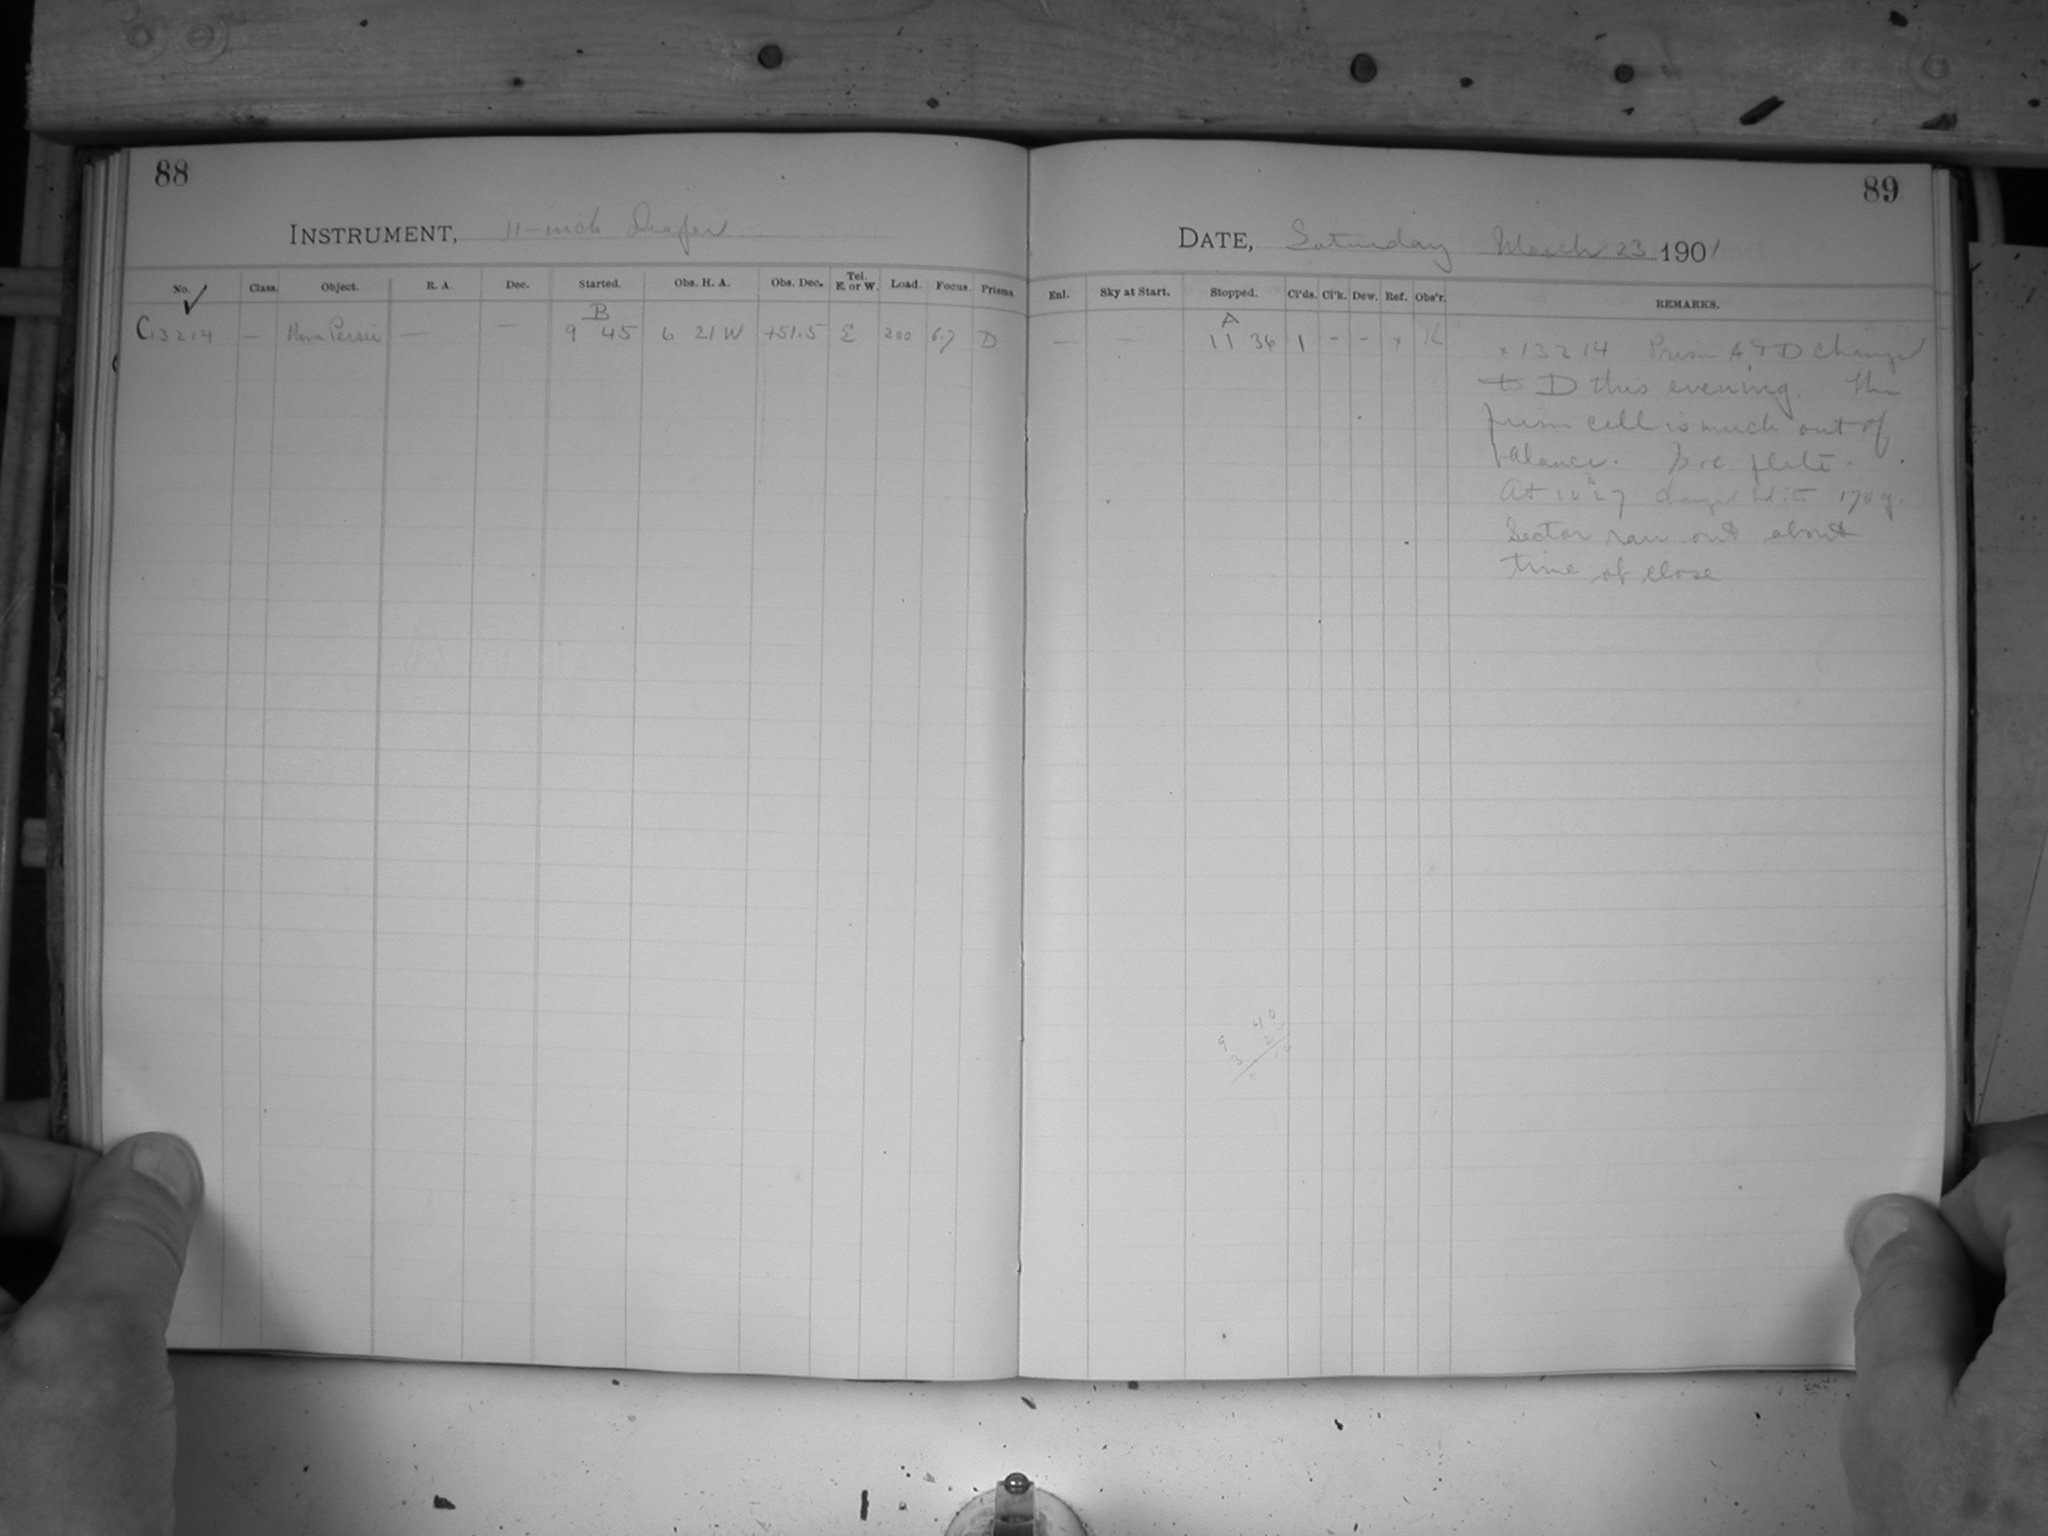 88
INSTRUMENT, 11-inch Draper
No. Class. Object. R. A. Dec. Started. Obs. H. A. Obs. Dec. Tel. E. or W. Load. Focus. Prisms.
B
C13214 — Nova Persei — — 9 45 6 21 W +51.5 E 200 6.7 D
89
DATE, Saturday March 23 1901
Enl. Sky at Start. Stopped. Cl'ds. Cl'k. Dew. Ref. Obs'r. REMARKS.
A
— — 11 36 1 - - x K
x 13214 Prism A & D changed
to D this evening. The
prism cell is much out of
balance. plate.
At 10 27 changed 170 g.
Sector ran out about
time of close
9 40
3 2